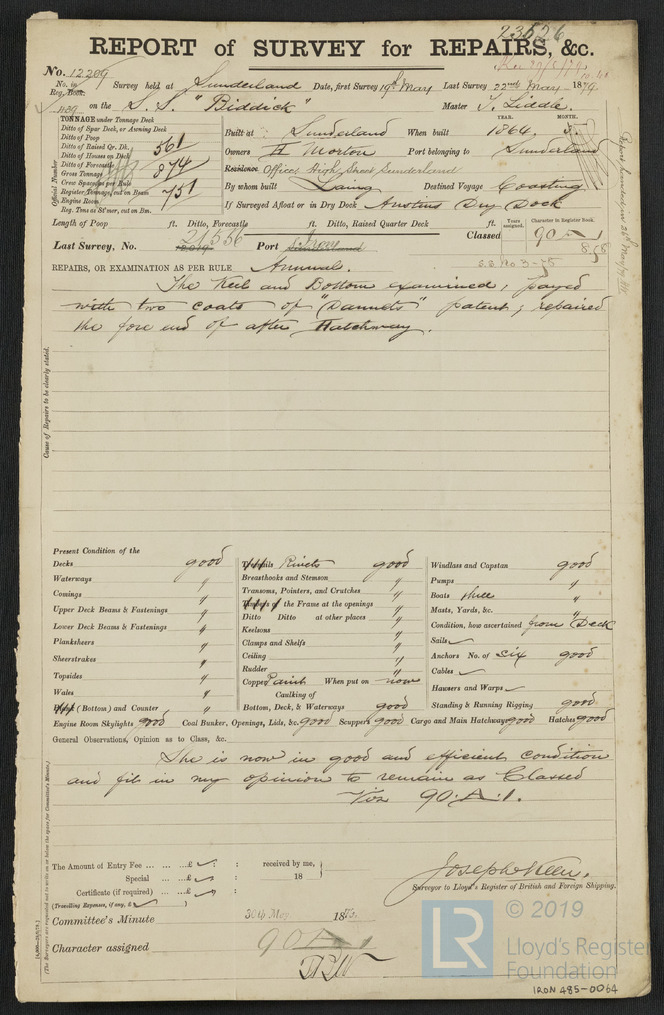 23526
REPORT of SURVEY for REPAIRS, &c.
No. 12209
Rec 29/5/79
No. in Reg. Book. Survey held at Sunderland Date, first Survey 19th May Last Survey 22nd May 1879
on the S.S. "Biddick" Master T. Liddle.
TONNAGE under Tonnage Deck
Ditto of Spar Deck, or Awning Deck
Ditto of Poop
Ditto of Raised Qr. Dk. 561
Ditto of Houses on Deck
Ditto of Forecastle
Gross Tonnage 874
Crew Space, as per Rule
Register Tonnage, cut on Beam 751
Engine Room
Reg. Tons as St'mer, cut on Bm.
Official Number
YEAR. MONTH.
Built at Sunderland When built 1864. 5.
Owners H Morton Port belonging to Sunderland
Residence Offices High Street Sunderland
By whom built Laing Destined Voyage Coasting
If Surveyed Afloat or in Dry Dock Austins Dry Dock
Length of Poop ft. Ditto, Forecastle ft. Ditto, Raised Quarter Deck ft.
Years assigned. Character in Register Book.
Classed 90 A 1
8.78
Last Survey, No. 21556 Port
S.S. No 3-75
REPAIRS, OR EXAMINATION AS PER RULE Annual.
The Keel and Bottom examined, payed
with two coats of "Dannets" patent; repaired
the fore end of after Hatchway.
Cause of Repairs to be clearly stated.
Present Condition of the
Decks good
Waterways "
Comings "
Upper Deck Beams & Fastenings "
Lower Deck Beams & Fastenings "
Planksheers "
Sheerstrakes "
Topsides "
Wales "
(Bottom) and Counter "
Rivets good
Breasthooks and Stemson "
Transoms, Pointers, and Crutches "
of the Frame at the openings "
Ditto Ditto at other places "
Keelsons "
Clamps and Shelfs "
Ceiling "
Rudder "
Copper Paint When put on now
Caulking of
Bottom, Deck, & Waterways good
Windlass and Capstan good
Pumps "
Boats three "
Masts, Yards, &c. "
Condition, how ascertained from Deck
Sails
Anchors No. of six good
Cables
Hawsers and Warps
Standing & Running Rigging good
Engine Room Skylights good Coal Bunker, Openings, Lids, &c. good Scuppers good Cargo and Main Hatchways good Hatches good
General Observations, Opinion as to Class, &c.
She is now in good and efficient condition
and fit in my opinion to remain as Classed
Viz 90.A.1.
(The Surveyors are requested not to write on or below the space for Committee's Minute.)
The Amount of Entry Fee ... ... ...£ : : received by me,
Special ... ...£ : 18
Certificate (if required) ... ...£ :
(Travelling Expenses, if any, £ )
Joseph Keen.
Surveyor to Lloyd's Register of British and Foreign Shipping.
Committee's Minute 30th May 187
Character assigned 90 A 1
© 2019
LR
Lloyd's Register
Foundation
IRON 485-0064